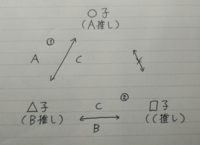 ○子
(A推し)
①
A
C
X
△子
(B推し)
C
②
B
□子
(C推し)